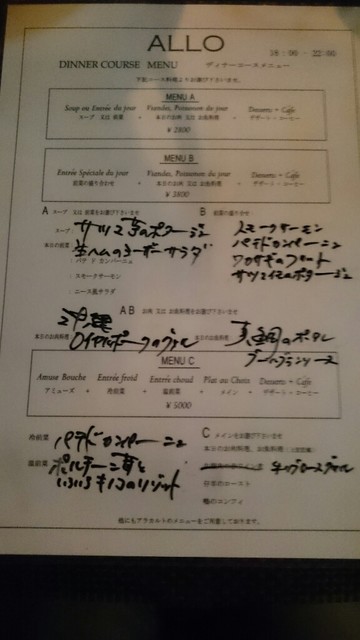 ALLO
18:00 - 22:00
DINNER COURSE MENU ディナーコースメニュー
下記コース料理よりお選び下さいませ。
MENU A
Soup ou Entrée du jour Viandes, Poissonon du jour Desserts + Cafe
スープ 又は 前菜 + 本日のお肉 又は お魚料理 + デザート・コーヒー
¥ 2800
MENU B
Entrée Spéciale du jour Viandes, Poissonon du jour Desserts + Cafe
前菜の盛り合わせ + 本日のお肉 又は お魚料理 + デザート・コーヒー
¥ 3800
A スープ 又は 前菜をお選び下さいませ
スープ: サツマ芋のポタージュ
本日の前菜 生ハムのシーザーサラダ
: パテ ド カンパーニュ
: スモークサーモン
: ニース風サラダ
B 前菜の盛り合せ
スモークサーモン
パテドカンパーニュ
ワカサギのフリット
サツマイモのポタージュ
A B お肉 又は お魚料理をお選び下さいませ
沖縄
本日のお肉料理 ロイヤルポークのグリル
本日のお魚料理 真鯛のポワレ
ブールブランソース
MENU C
Amuse Bouche Entrée froid Entrée chaud Plat au Choix Desserts + Cafe
アミューズ + 冷前菜 + 温前菜 + メイン + デザート・コーヒー
¥ 5000
冷前菜 パテドカンパーニュ
温前菜 ポルチーニ茸と
いろいろキノコのリゾット
C メインをお選び下さいませ
本日のお肉料理、お魚料理
牛リブロースグリル
仔羊のロースト
鴨のコンフィ
他にもアラカルトのメニューをご用意しております。